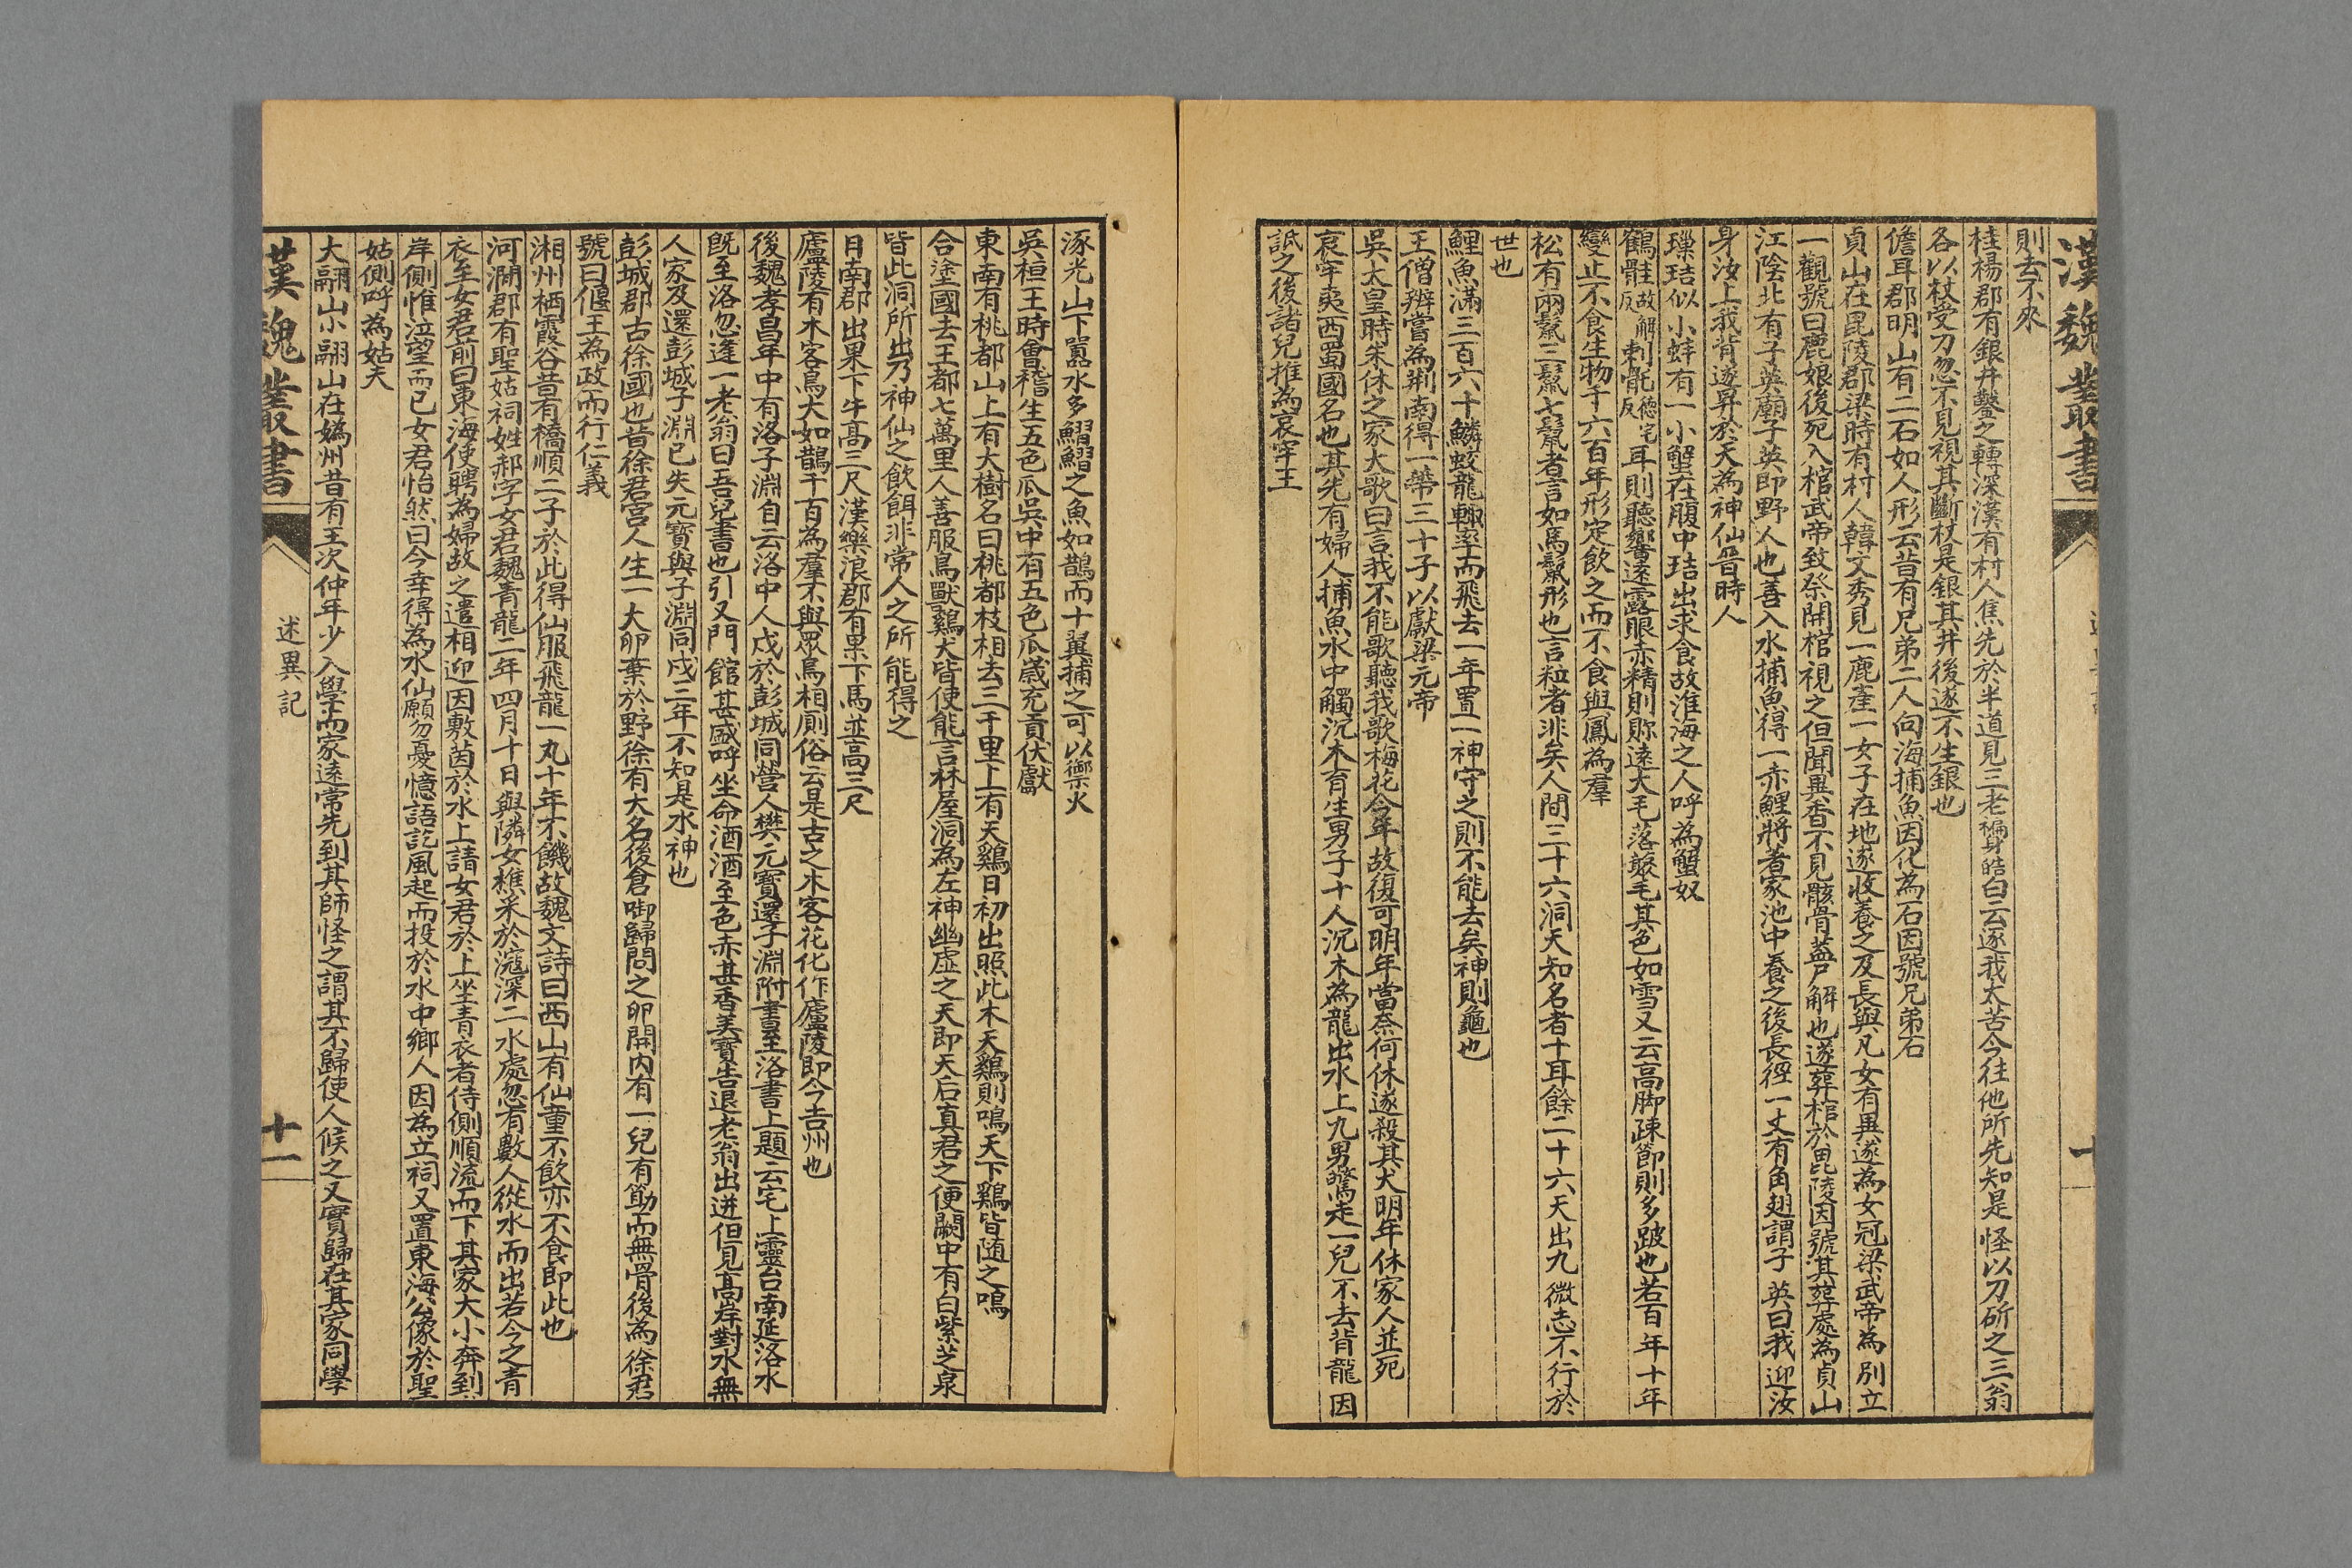 漢魏叢書
十
則去不來
桂楊郡有銀井鑿之轉深漢有村人焦先於半道見三老徧身皓白云逐我太苦今往他所先知是怪以刀斫之三翁
各以杖受刀忽不見視其斷杖是銀其井後遂不生銀也
儋耳郡明山有二石如人形云昔有兄弟二人向海捕魚因化為石因號兄弟石
貞山在毘陵郡梁時有村人韓文秀見一鹿產一女子在地遂收養之及長與凡女有異遂為女冠梁武帝為別立
一觀號曰鹿娘後死入棺武帝致祭開棺視之但聞異香不見骸骨蓋尸解也遂葬棺於毘陵因號其葬處為貞山
江陰北有子英廟子英即野人也善入水捕魚得一赤鯉將著家池中養之後長徑一丈有角翅謂子英曰我迎汝
身汝上我背遂昇於天為神仙晉時人
璅琂似小蚌有一小蟹在腹中琂出求食故淮海之人呼為蟹奴
鶴骹故解反剌骹德宅反耳則聽響遠露眼赤精則眎遠大毛落氄毛其色如雪又云高脚疎節則多跛也若百年十年
變止不食生物千六百年形定飲之而不食與鳳為羣
松有兩鬣三鬣七鬣者言如馬鬣形也言粒者非矣人間三十六洞天知名者十耳餘二十六天出九微志不行於
世也
鯉魚滿三百六十鱗蛟龍輙率而飛去一年置一神守之則不能去矣神則龜也
王僧辨嘗為荆南得一蒂三十子以獻梁元帝
吳太皇時朱休之家犬歌曰言我不能歌聽我歌梅花今年故復可明年當奈何休遂殺其犬明年休家人並死
哀牢夷西蜀國名也其先有婦人捕魚水中觸沉木育生男子十人沉木為龍出水上九男驚走一兒不去背龍因
䑛之後諸兒推為哀牢王
涿光山下嚻水多鰼鰼之魚如鵲而十翼捕之可以禦火
吳桓王時會稽生五色瓜吳中有五色瓜嵗充貢伏獻
東南有桃都山上有大樹名曰桃都枝相去三千里上有天鷄日初出照此木天鷄則鳴天下鷄皆随之鳴
合塗國去王都七萬里人善服鳥獸鷄犬皆使能言林屋洞為左神幽虛之天即天后真君之便闕中有白紫芝泉
皆此洞所出乃神仙之飲餌非常人之所能得之
日南郡出果下牛高三尺漢樂浪郡有果下馬並高三尺
廬陵有木客鳥大如鵲千百為羣不與眾鳥相厠俗云是古之木客花化作廬陵即今吉州也
後魏孝昌年中有洛子淵自云洛中人戍於彭城同營人樊元寶還子淵附書至洛書上題云宅上靈台南延洛水
既至洛忽逢一老翁曰吾兒書也引又門館甚盛呼坐命酒酒至色赤甚香美寶告退老翁出迸但見高岸對水無
人家及還彭城子淵已失元寶與子淵同戍三年不知是水神也
彭城郡古徐國也昔徐君宫人生一大卵棄於野徐有犬名後倉啣歸問之卵開内有一兒有筯而無骨後為徐君
號曰偃王為政而行仁義
湘州栖霞谷昔有橋順二子於此得仙服飛龍一丸十年不饑故魏文詩曰西山有仙童不飲亦不食即此也
河澗郡有聖姑祠姓郝字女君魏青龍二年四月十日與隣女樵采於滱深二水處忽有數人從水而出若今之青
衣至女君前曰東海使聘為婦故之遣相迎因敷茵於水上請女君於上坐青衣者侍側順流而下其家大小奔到
岸側惟泣望而已女君怡然曰今幸得為水仙願勿憂憶語訖風起而投於水中鄉人因為立祠又置東海公像於聖
姑側呼為姑夫
大翮山小翮山在媯州昔有王次仲年少入學而家遠常先到其師怪之謂其不歸使人候之又實歸在其家同學
漢魏叢書
述異記
十一